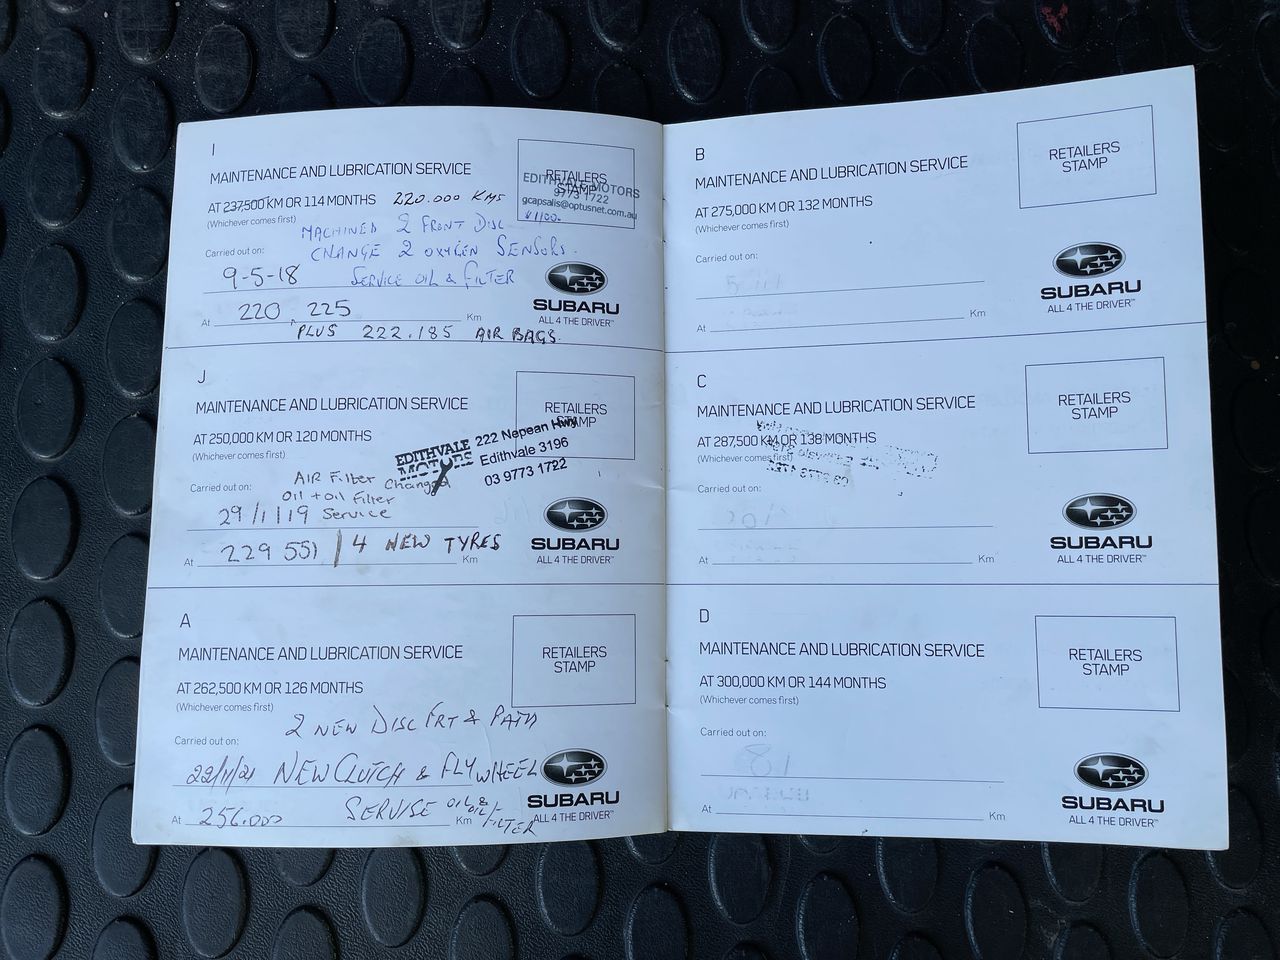 I
MAINTENANCE AND LUBRICATION SERVICE
AT 237,500 KM OR 114 MONTHS 220.000 KMS
(Whichever comes first)
MACHINED 2 FRONT DISC
Carried out on:
CHANGE 2 OXYGEN SENSORS.
9-5-18 SERVICE OIL & FILTER
At 220,225 Km
PLUS 222.185 AIR BAGS.
RETAILERS
STAMP
EDITHVALE MOTORS
9773 1722
gcapsalis@optusnet.com.au
$1100.
SUBARU
ALL 4 THE DRIVER™
J
MAINTENANCE AND LUBRICATION SERVICE
AT 250,000 KM OR 120 MONTHS
(Whichever comes first)
Carried out on:
AIR Filter Changed
Oil + oil Filter
29/1/19 Service
At 229 551 | 4 NEW TYRES Km
RETAILERS
STAMP
EDITHVALE
MOTORS
222 Nepean Hwy
Edithvale 3196
03 9773 1722
SUBARU
ALL 4 THE DRIVER™
A
MAINTENANCE AND LUBRICATION SERVICE
AT 262,500 KM OR 126 MONTHS
(Whichever comes first)
2 NEW DISC FRT &
Carried out on:
22/11/21 NEW CLUTCH & FLYWHEEL
At 256.000 Km
SERVISE OIL & OIL/FILTER
RETAILERS
STAMP
SUBARU
ALL 4 THE DRIVER™
B
MAINTENANCE AND LUBRICATION SERVICE
AT 275,000 KM OR 132 MONTHS
(Whichever comes first)
Carried out on:
At Km
RETAILERS
STAMP
SUBARU
ALL 4 THE DRIVER™
C
MAINTENANCE AND LUBRICATION SERVICE
AT 287,500 KM OR 138 MONTHS
(Whichever comes first)
Carried out on:
At Km
RETAILERS
STAMP
SUBARU
ALL 4 THE DRIVER™
D
MAINTENANCE AND LUBRICATION SERVICE
AT 300,000 KM OR 144 MONTHS
(Whichever comes first)
Carried out on:
At Km
RETAILERS
STAMP
SUBARU
ALL 4 THE DRIVER™